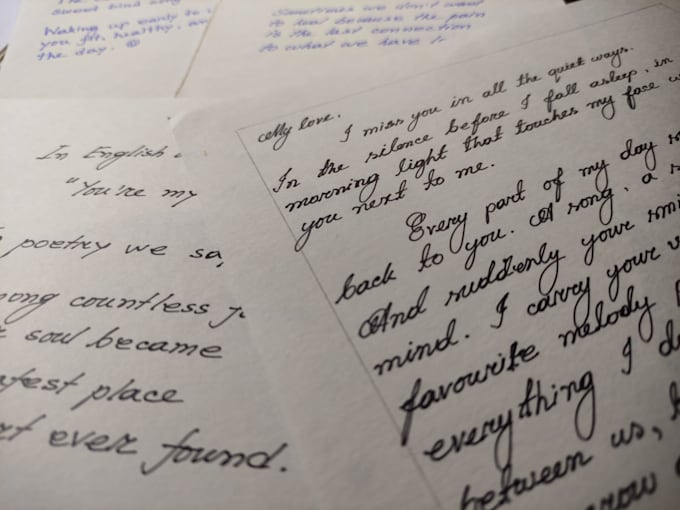 sweet kind
Waking up early to
you fit, healthy, an
the day.
Sometimes we don't want
to heal because the pain
is the last connection
to what we have
In English
"You're my
poetry we say
ong countless
soul became
afest place
rt ever found.
My love.
I miss you in all the quiet ways.
In the silence before I fall asleep, in
morning light that touches my face w
you next to me.
Every part of my day
back to you. A song, a
And suddenly your smi
mind. I carry your v
favourite melody
everything I d
between us,